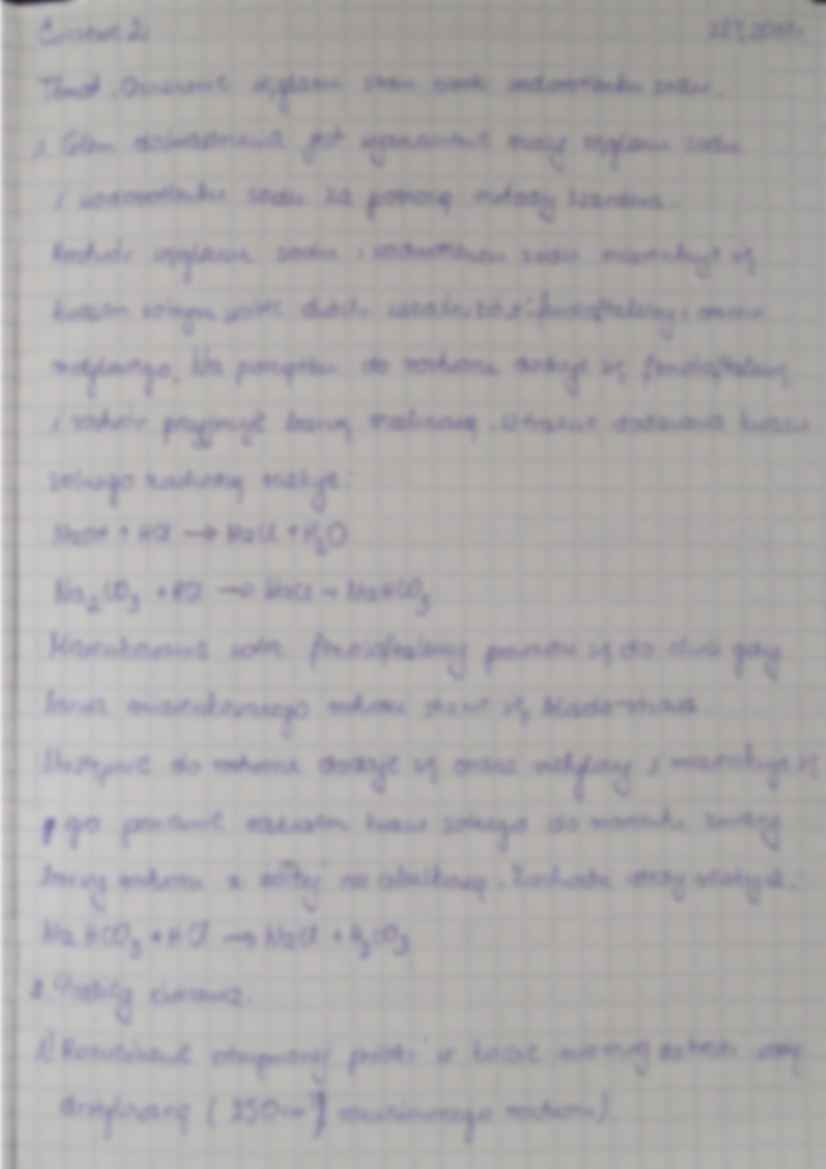 Ćwiczenie 2.
Temat: Oznaczanie węglanu sodu obok wodorotlenku sodu.
1. Celem doświadczenia jest wyznaczenie masy węglanu sodu
i wodorotlenku sodu za pomocą metody Wardera.
Roztwór węglanu sodu i wodorotlenku sodu miareczkuje się
kwasem solnym wobec dwóch wskaźników: fenoloftaleiny i oranżu
metylowego. Na początku do roztworu dodaje się fenoloftaleinę
i roztwór przyjmuje barwę malinową. W trakcie dodawania kwasu
solnego zachodzą reakcje:
NaOH + HCl → NaCl + H₂O
Na₂CO₃ + HCl → NaCl + NaHCO₃
Miareczkowanie wobec fenoloftaleiny prowadzi się do chwili gdy
barwa miareczkowanego roztworu stanie się blado-różowa.
Następnie do roztworu dodaje się oranż metylowy i miareczkuje się
go ponownie roztworem kwasu solnego do momentu zmiany
barwy roztworu z żółtej na cebulkową. Zachodzi wtedy reakcja:
NaHCO₃ + HCl → NaCl + H₂CO₃
2. Przebieg ćwiczenia.
1) Rozcieńczenie otrzymanej próbki w kolbie miarowej wodą
destylowaną (250 cm³ rozcieńczonego roztworu).